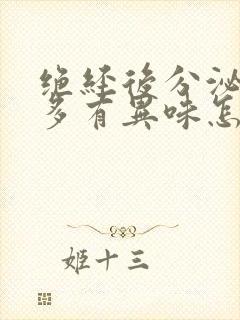 绝經後分泌
多有異味怎
姬十三